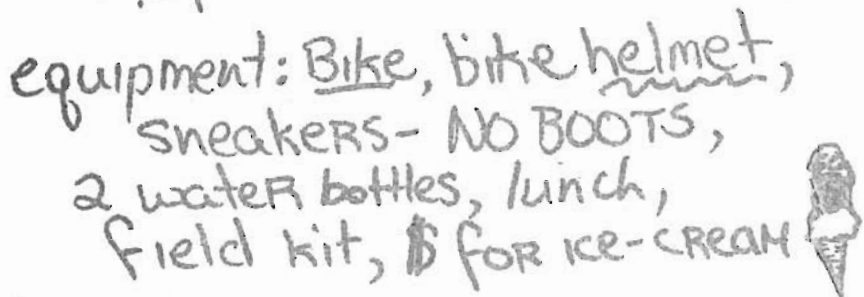 equipment: Bike, bike helmet,
sneakers - NO BOOTS,
2 water bottles, lunch,
field kit, $ for ice-cream